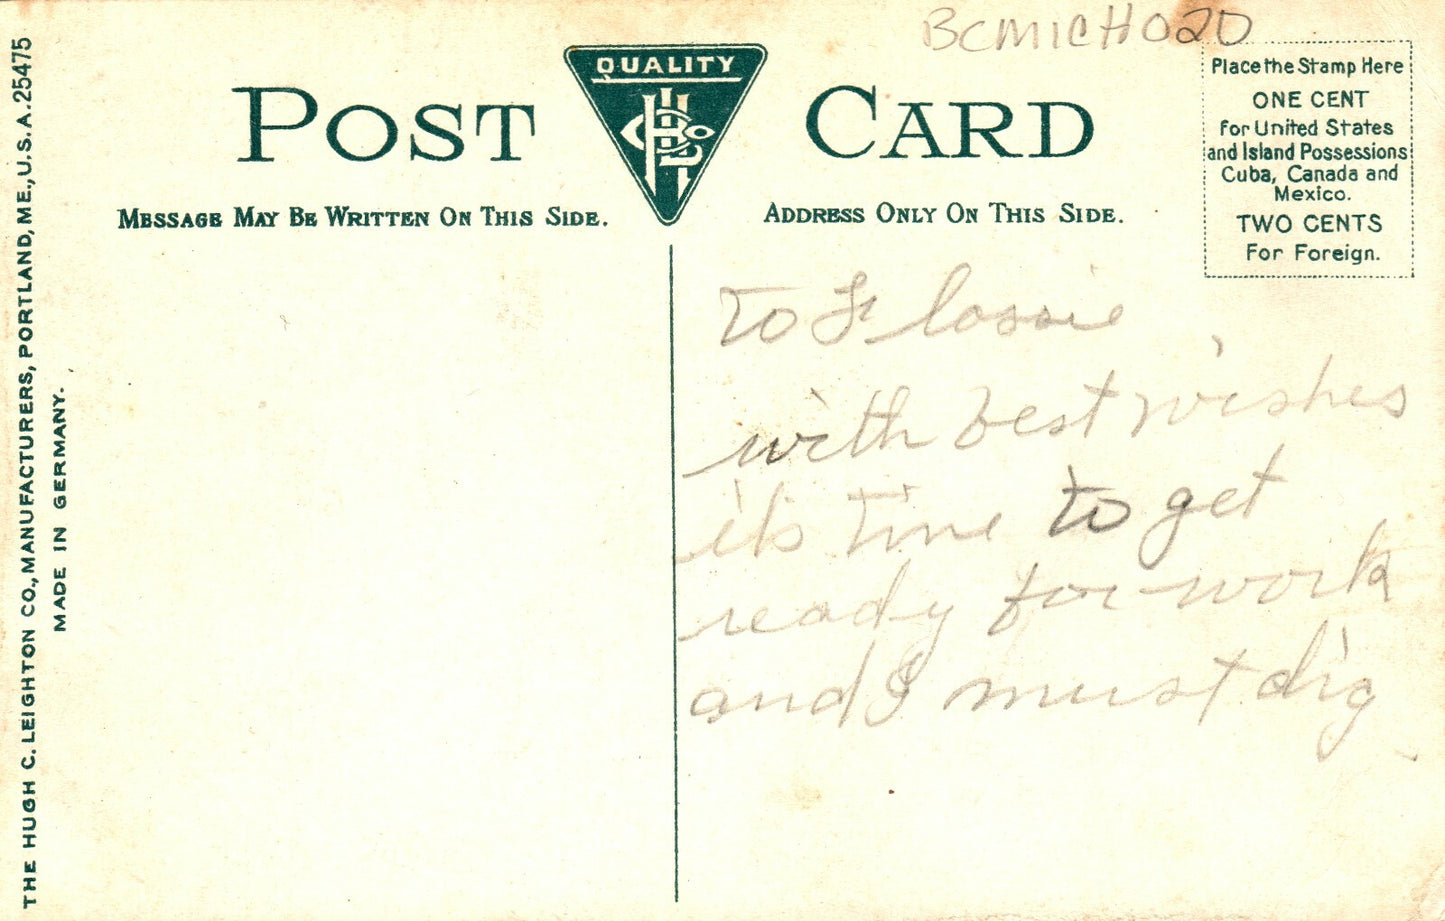 BCMICH020
POST CARD
QUALITY
MESSAGE MAY BE WRITTEN ON THIS SIDE.
ADDRESS ONLY ON THIS SIDE.
Place the Stamp Here
ONE CENT
For United States
and Island Possessions
Cuba, Canada and
Mexico.
TWO CENTS
For Foreign.
THE HUGH C. LEIGHTON CO., MANUFACTURERS, PORTLAND, ME., U.S.A. 25475
MADE IN GERMANY.
to Flossie
with best wishes
it's time to get
ready for work
and I must dig